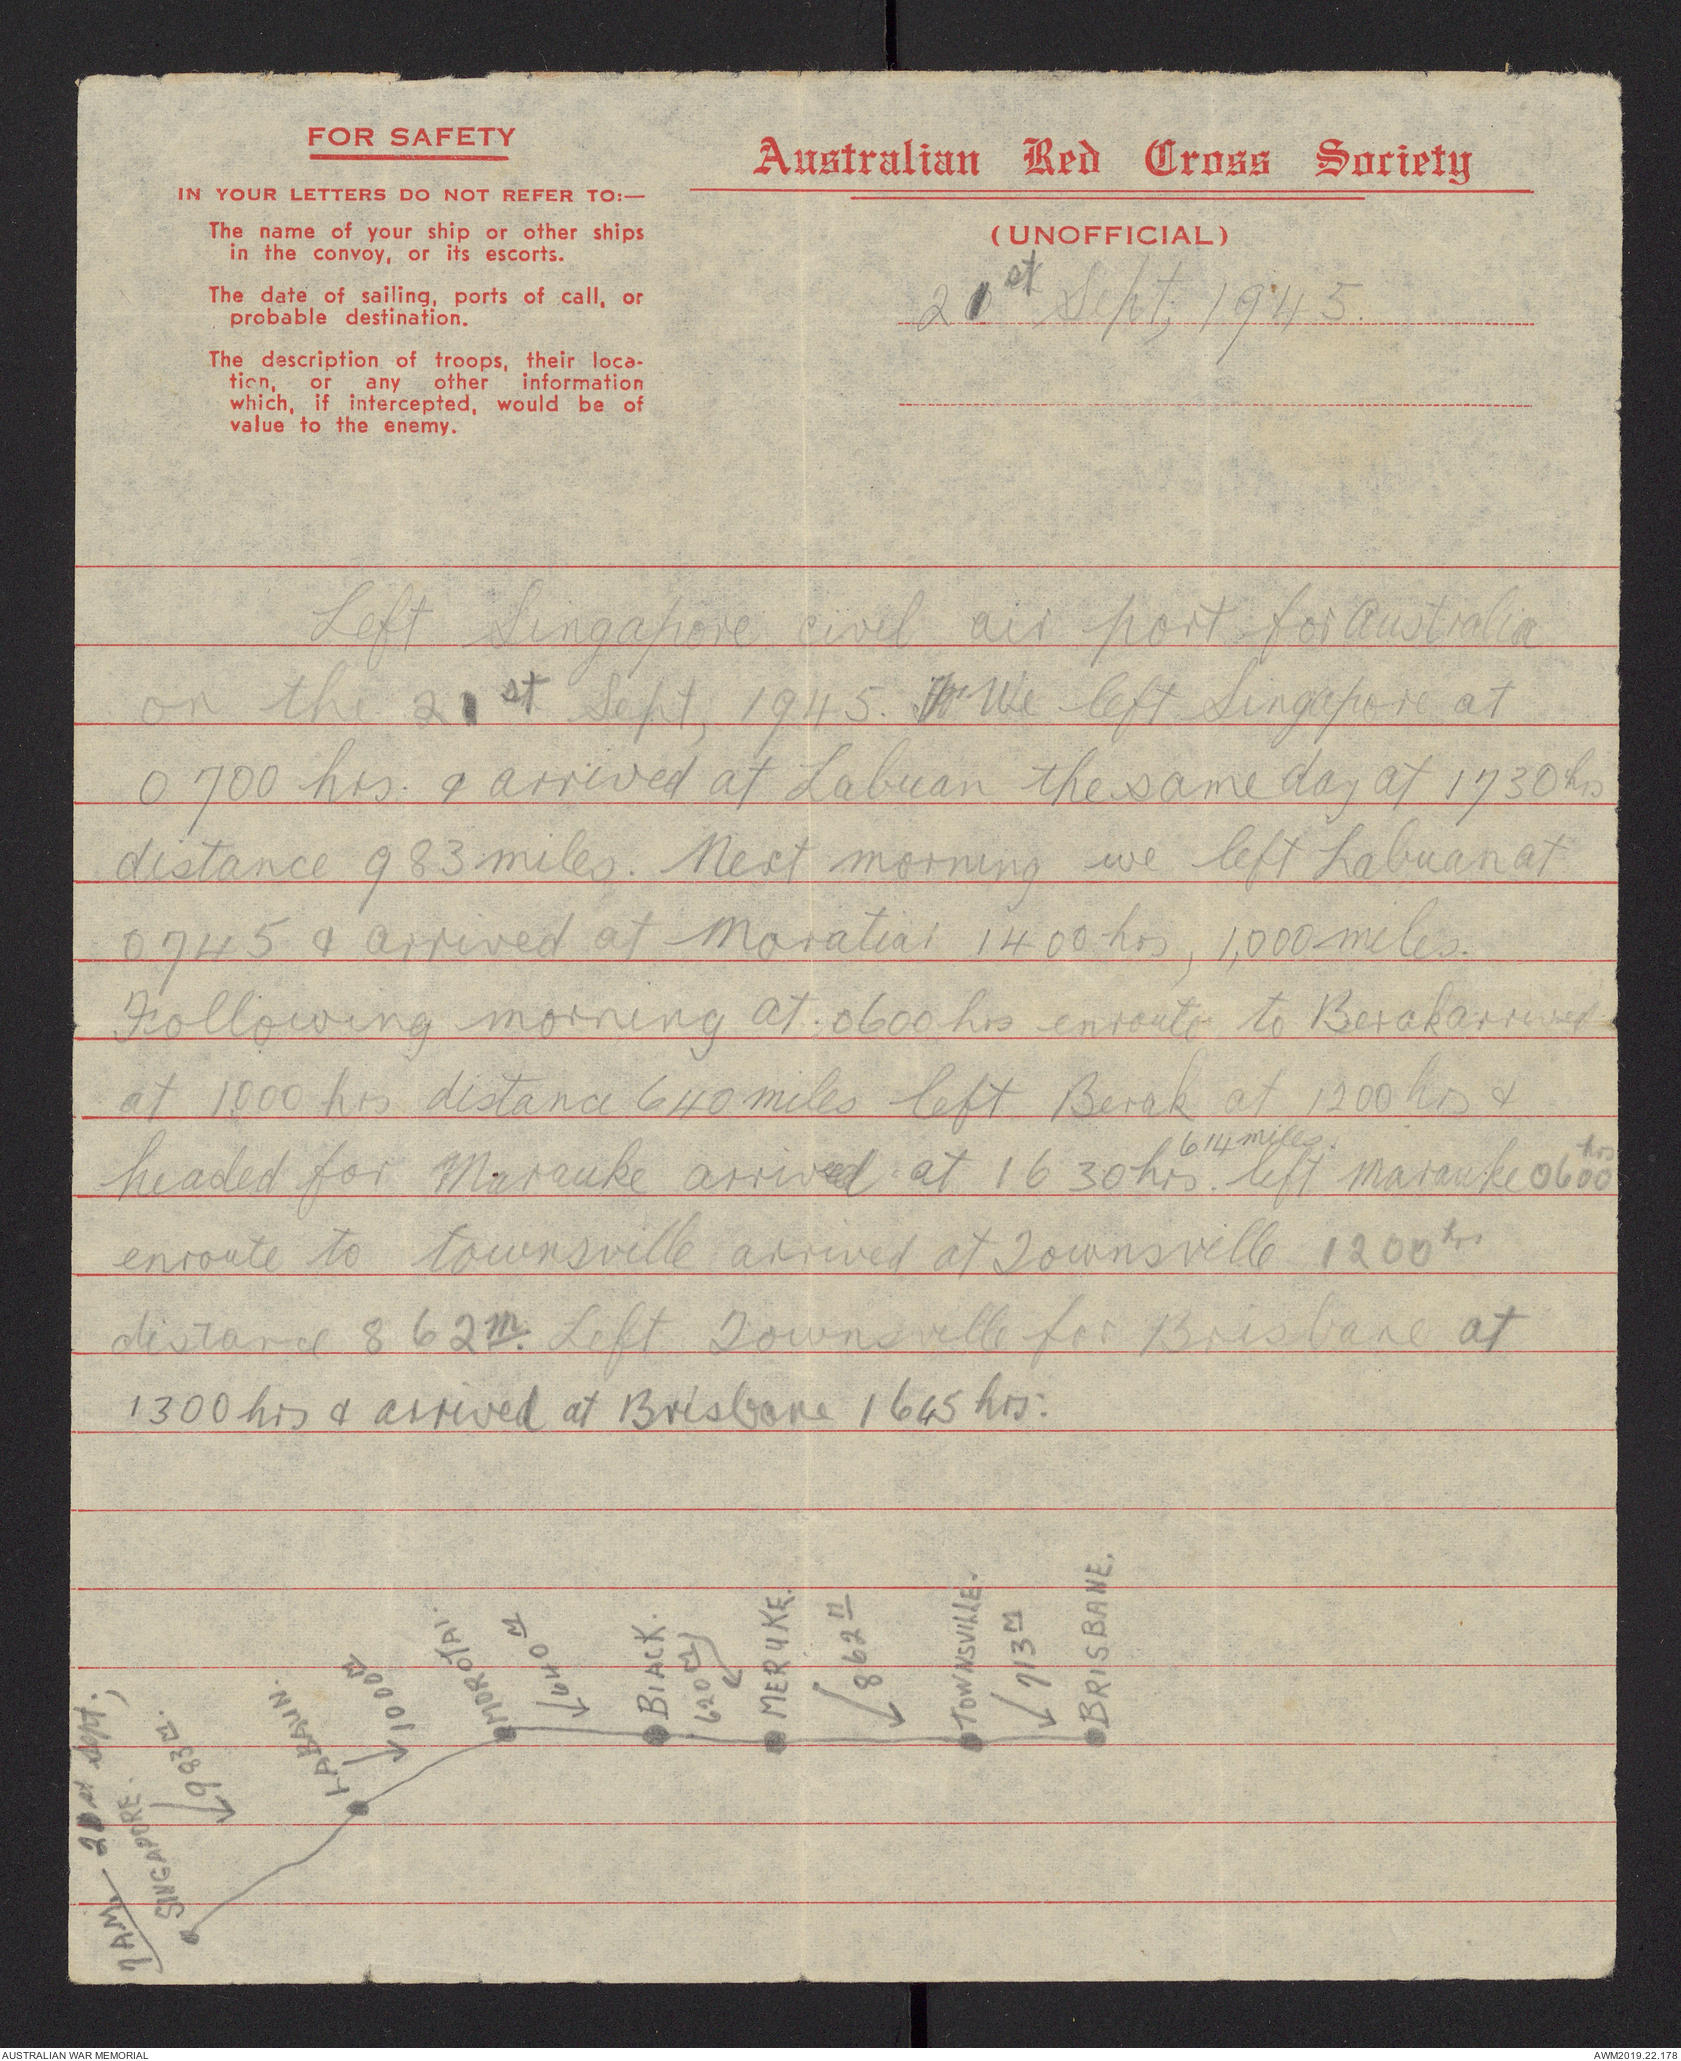 FOR SAFETY
IN YOUR LETTERS DO NOT REFER TO:—
The name of your ship or other ships
in the convoy, or its escorts.
The date of sailing, ports of call, or
probable destination.
The description of troops, their loca-
tion, or any other information
which, if intercepted, would be of
value to the enemy.
Australian Red Cross Society
(UNOFFICIAL)
21st Sept, 1945.
Left Singapore civil air port for Australia
on the 21st Sept, 1945. We left Singapore at
0700 hrs. & arrived at Labuan the same day at 1730 hrs
distance 983 miles. Next morning we left Labuan at
0745 & arrived at Moratiai 1400 hrs, 1,000 miles.
Following morning at 0600 hrs enroute to Berak arrived
at 1000 hrs distance 640 miles left Berak at 1200 hrs &
headed for Marauke arrived at 1630 hrs. 614 miles. left Marauke 0600 hrs
enroute to townsville arrived at Townsville 1200 hrs
distance 862 m. Left Townsville for Brisbane at
1300 hrs & arrived at Brisbane 1645 hrs.
7AM — 21st Sept,
SINGAPORE.
983 M.
LABAUN.
1000 M
MOROTAI.
640 M
BIACK.
620 M
MERUKE.
862 M
TOWNSVILLE.
713 M
BRISBANE.
AUSTRALIAN WAR MEMORIAL
AWM2019.22.178